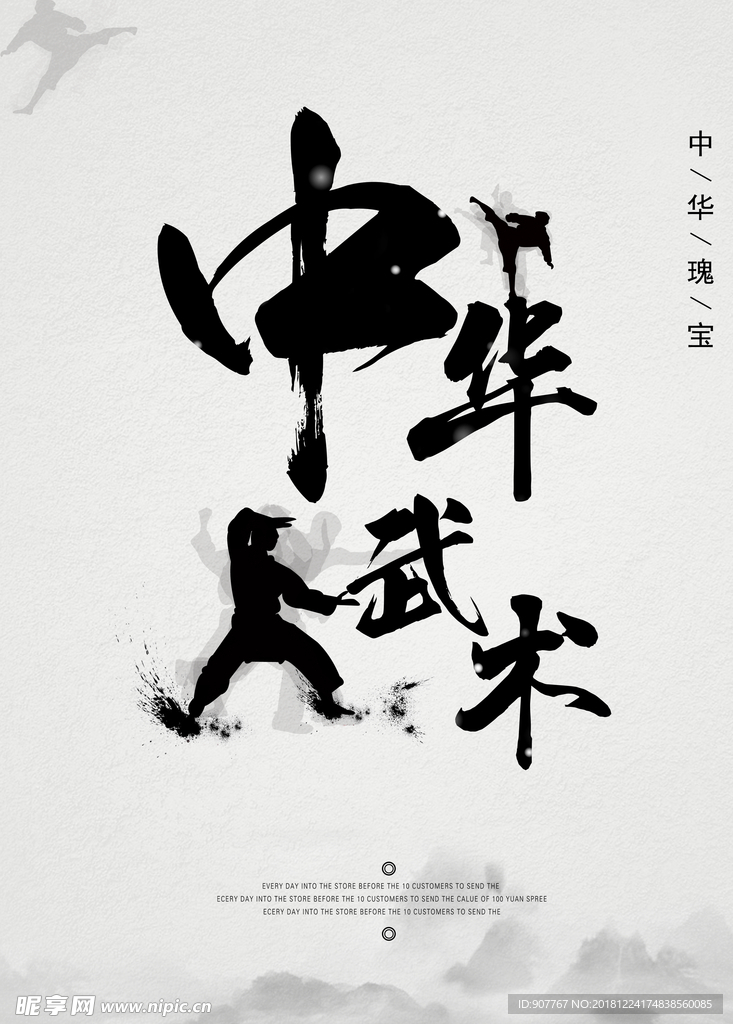 中华
武术
中/华/瑰/宝
EVERY DAY INTO THE STORE BEFORE THE 10 CUSTOMERS TO SEND THE
ECERY DAY INTO THE STORE BEFORE THE 10 CUSTOMERS TO SEND THE CALUE OF 100 YUAN SPREE
ECERY DAY INTO THE STORE BEFORE THE 10 CUSTOMERS TO SEND THE
昵享网 www.nipic.cn
ID:907767 NO:20181224174838560085